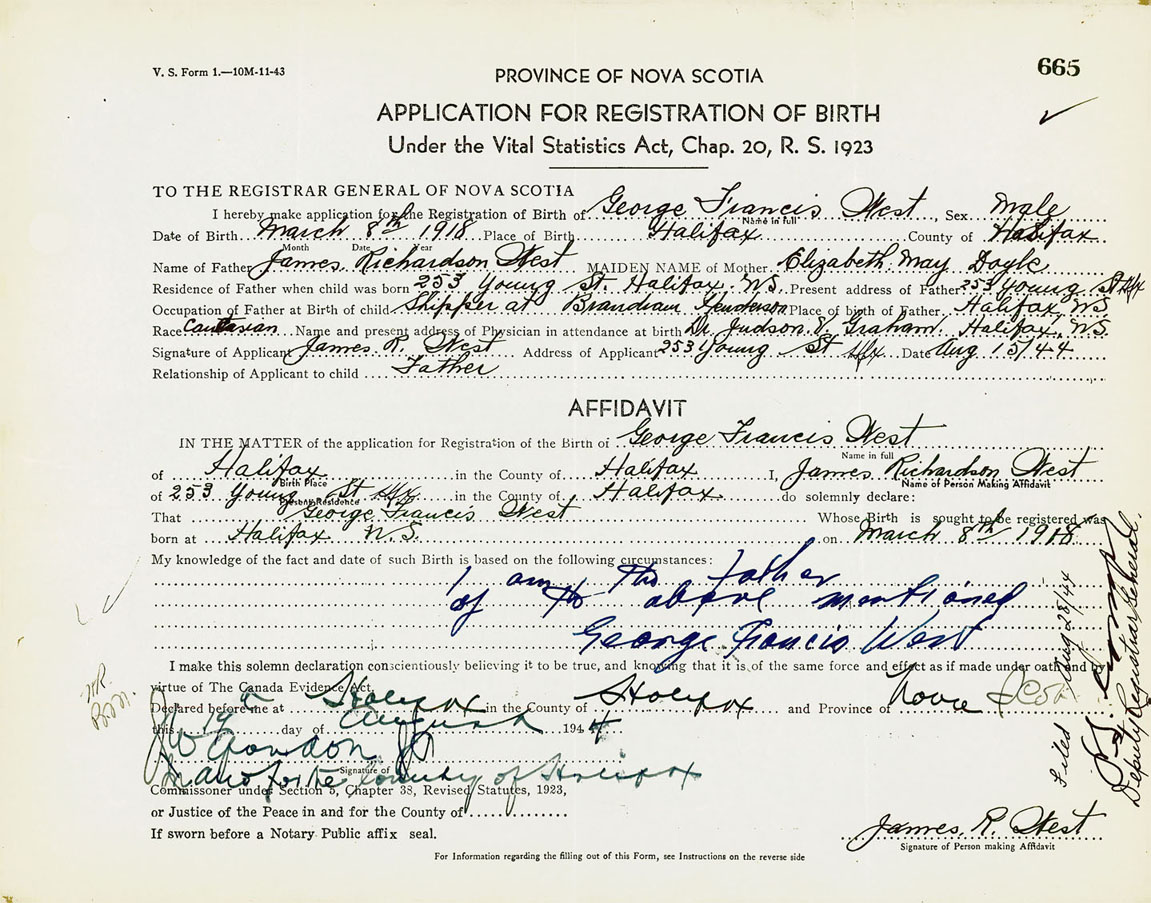 V. S. Form 1.—10M-11-43
665
PROVINCE OF NOVA SCOTIA
APPLICATION FOR REGISTRATION OF BIRTH
Under the Vital Statistics Act, Chap. 20, R. S. 1923
TO THE REGISTRAR GENERAL OF NOVA SCOTIA
I hereby make application for the Registration of Birth of George Francis West, Sex Male
Name in full
Date of Birth March 8th 1918 Place of Birth Halifax County of Halifax
Month Date Year
Name of Father James Richardson West MAIDEN NAME of Mother Elizabeth May Doyle
Residence of Father when child was born 253 Young St. Halifax N.S. Present address of Father 253 Young St Hfx
Occupation of Father at Birth of child Shipper at Henderson Place of birth of Father Halifax, N.S.
Race Caucasian Name and present address of Physician in attendance at birth Dr. Judson V. Graham. Halifax, N.S.
Signature of Applicant James R. West Address of Applicant 253 Young St Hfx Date Aug 15/44
Relationship of Applicant to child Father
AFFIDAVIT
IN THE MATTER of the application for Registration of the Birth of George Francis West
Name in full
of Halifax in the County of Halifax I, James Richardson West
Birth Place
Name of Person Making Affidavit
of 253 Young St Hfx in the County of Halifax do solemnly declare:
Present Residence
That George Francis West Whose Birth is sought to be registered was
born at Halifax N.S. on March 8th 1918
My knowledge of the fact and date of such Birth is based on the following circumstances:
I am the father
of the above mentioned
George Francis West
I make this solemn declaration conscientiously believing it to be true, and knowing that it is of the same force and effect as if made under oath and by
virtue of The Canada Evidence Act.
Declared before me at Halifax in the County of Halifax and Province of Nova Scotia
this day of August 1944
Signature of
County of Halifax
Commissioner under Section 5, Chapter 38, Revised Statutes, 1923,
or Justice of the Peace in and for the County of
If sworn before a Notary Public affix seal.
James R. West
Signature of Person making Affidavit
For Information regarding the filling out of this Form, see Instructions on the reverse side
Filed Aug 28/44
Deputy Registrar General.